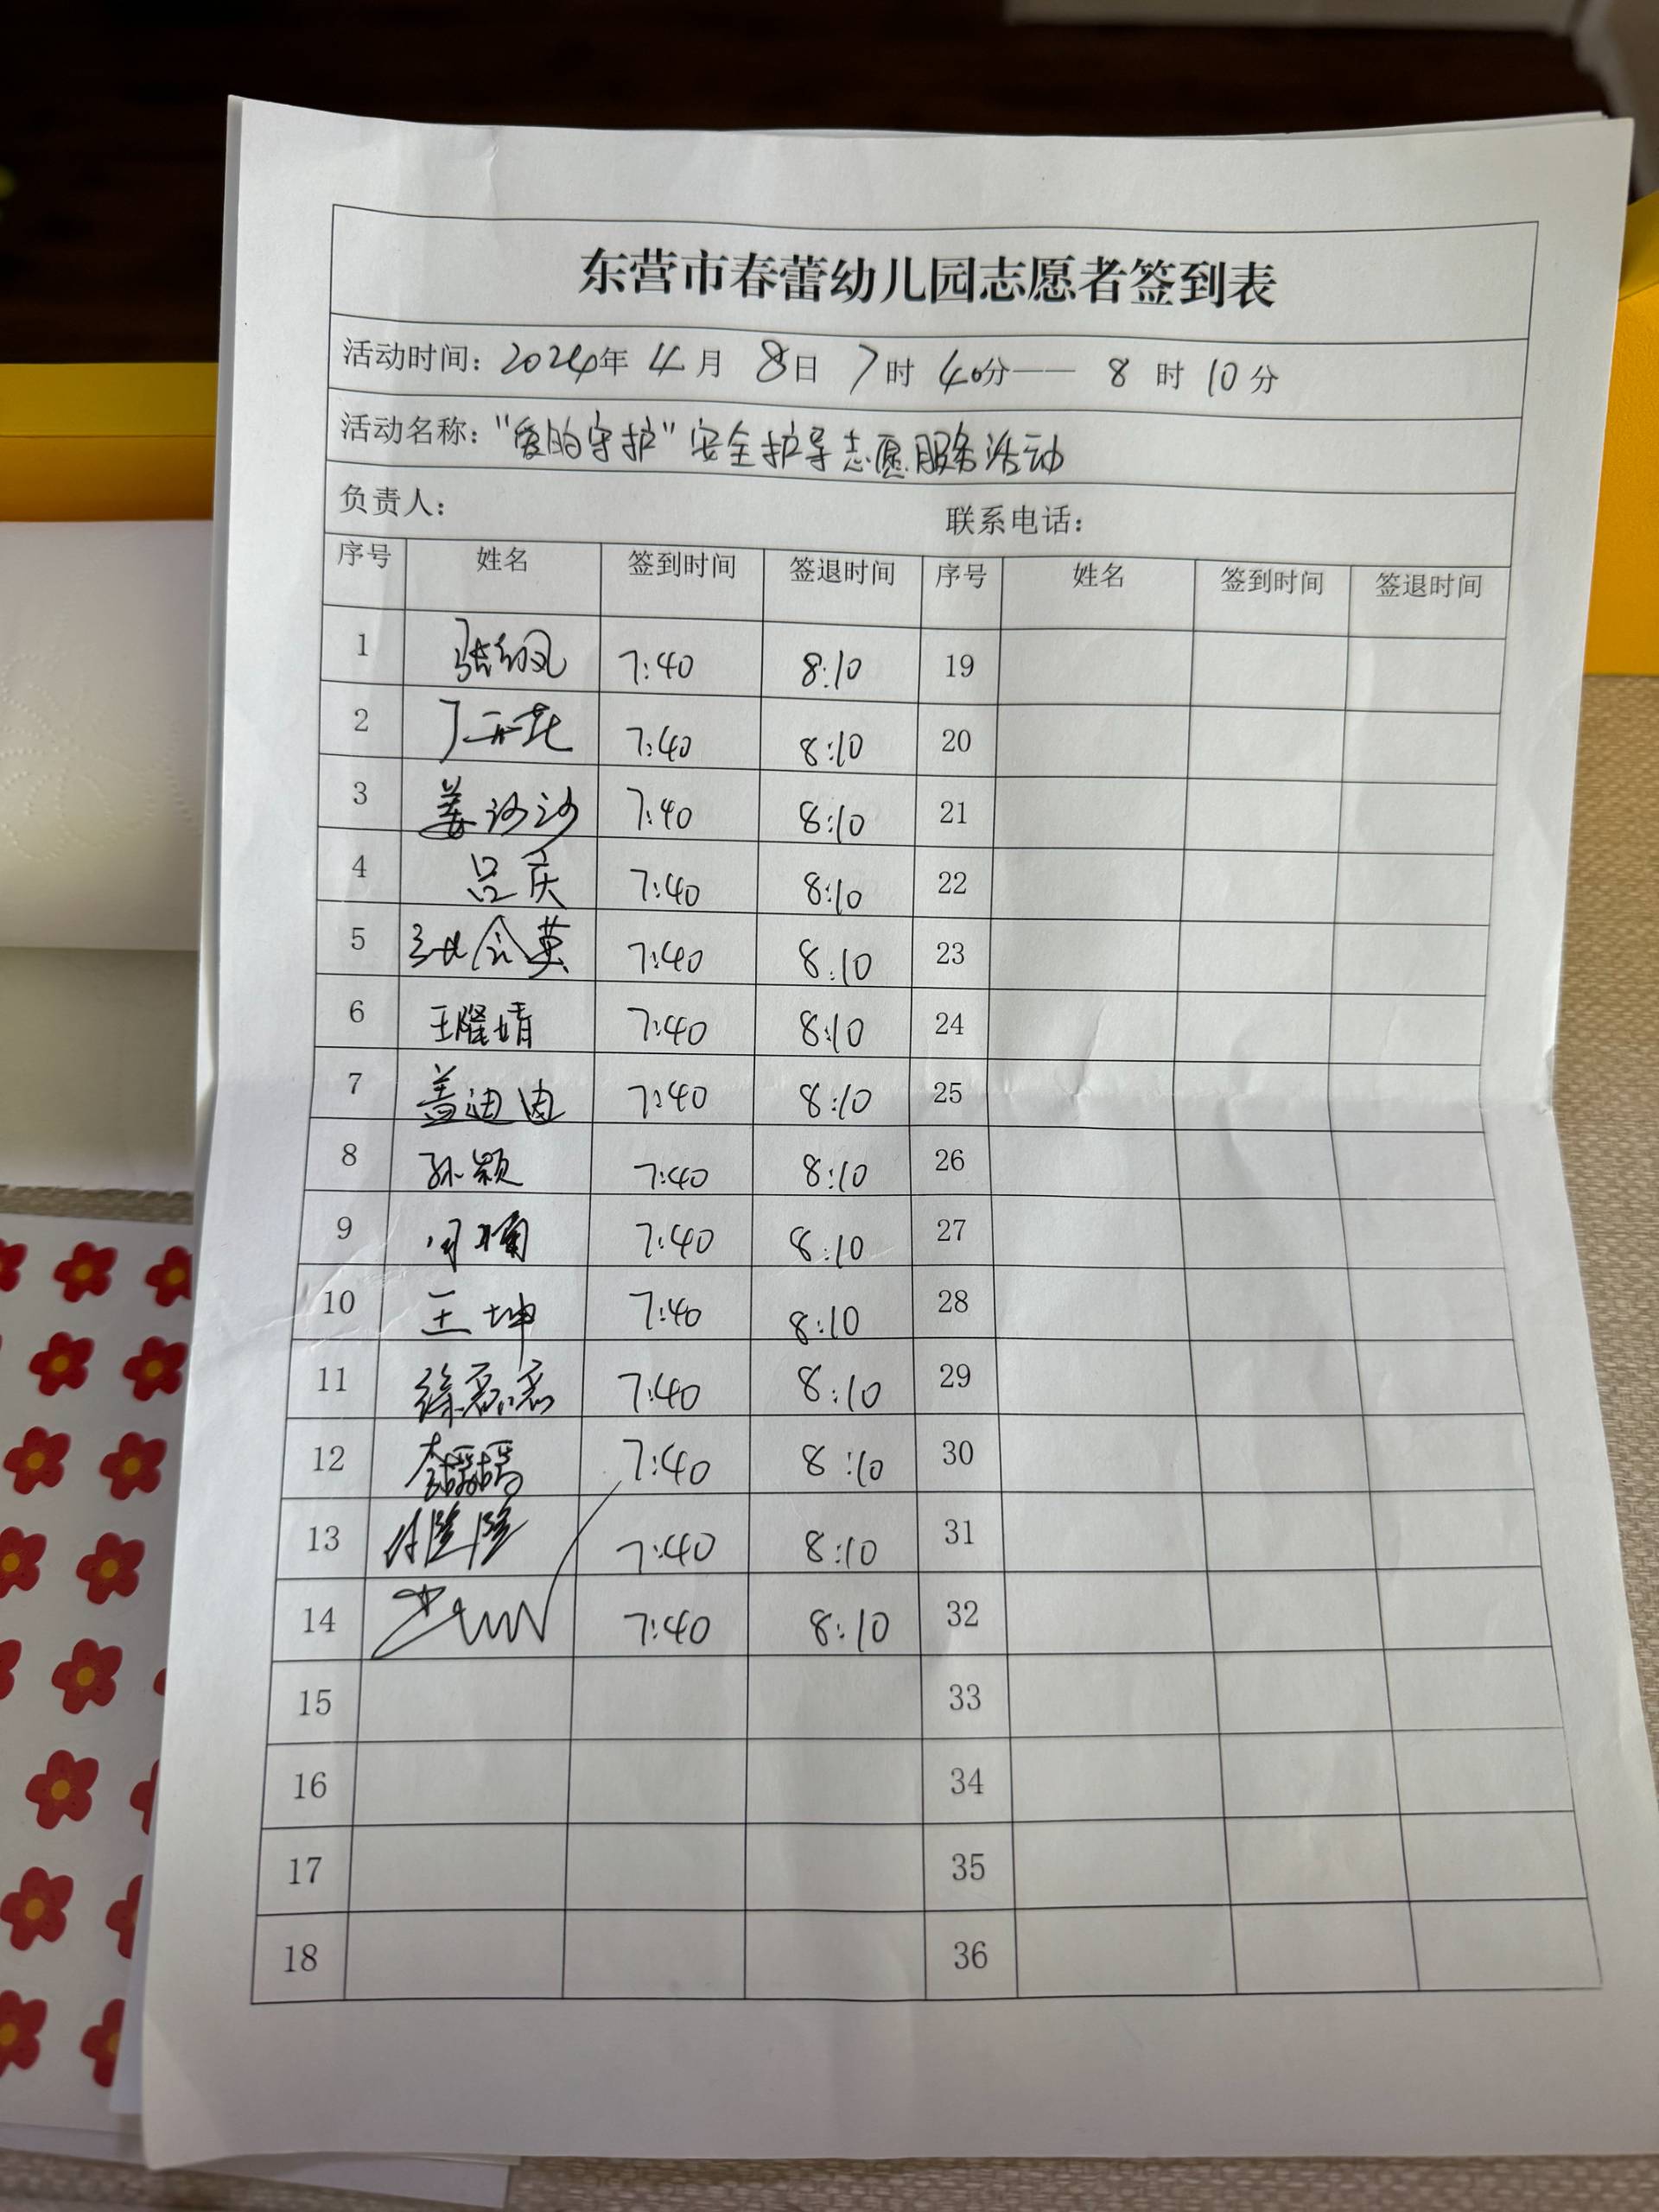 东营市春蕾幼儿园志愿者签到表
活动时间: 2024年 4月 8日 7时 40分—— 8时 10分
活动名称: "爱的守护"安全护导志愿服务活动
负责人: 联系电话:
序号 姓名 签到时间 签退时间 序号 姓名 签到时间 签退时间
1 7:40 8:10 19
2 7:40 8:10 20
3 姜沙沙 7:40 8:10 21
4 吕庆 7:40 8:10 22
5 7:40 8:10 23
6 王隆婧 7:40 8:10 24
7 盖迪迪 7:40 8:10 25
8 孙颖 7:40 8:10 26
9 7:40 8:10 27
10 王坤 7:40 8:10 28
11 徐磊磊 7:40 8:10 29
12 7:40 8:10 30
13 7:40 8:10 31
14 7:40 8:10 32
15 33
16 34
17 35
18 36